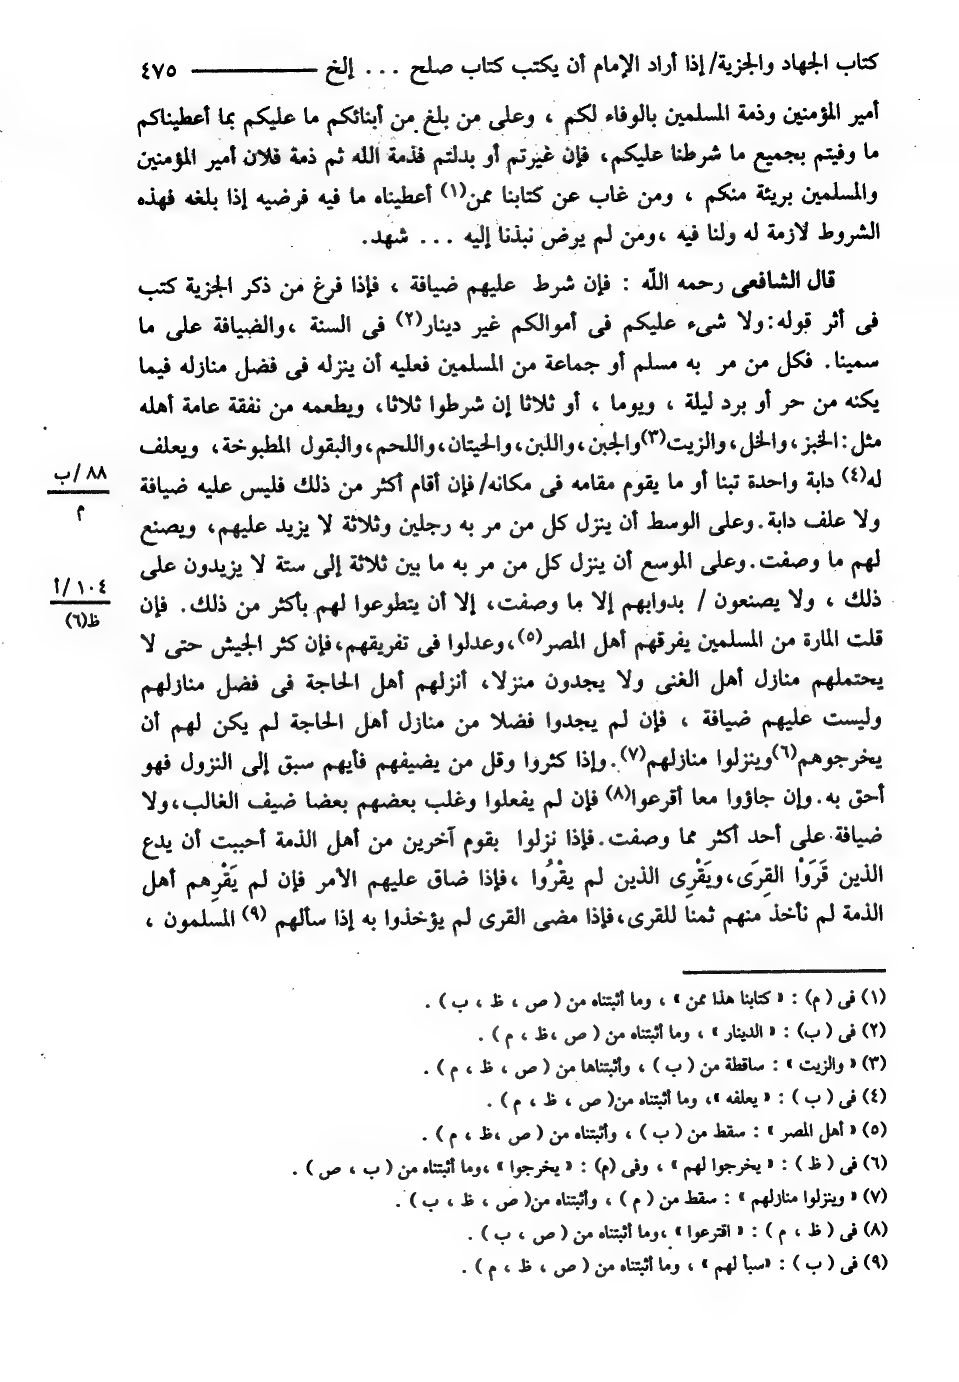 كتاب الجهاد والجزية/ إذا أراد الإمام أن يكتب كتاب صلح ... إلخ ٤٧٥
أمير المؤمنين وذمة المسلمين بالوفاء لكم ، وعلى من بلغ من أبنائكم ما عليكم بما أعطيناكم
ما وفيتم بجميع ما شرطنا عليكم، فإن غيرتم أو بدلتم فذمة الله ثم ذمة فلان أمير المؤمنين
والمسلمين بريئة منكم ، ومن غاب عن كتابنا ممن(١) أعطيناه ما فيه فرضيه إذا بلغه فهذه
الشروط لازمة له ولنا فيه ،ومن لم يرض نبذنا إليه ... شهد.
قال الشافعى رحمه الله : فإن شرط عليهم ضيافة ، فإذا فرغ من ذكر الجزية كتب
فى أثر قوله: ولا شىء عليكم فى أموالكم غير دينار(٢) فى السنة ،والضيافة على ما
سمينا. فكل من مر به مسلم أو جماعة من المسلمين فعليه أن ينزله فى فضل منازله فيما
يكنه من حر أو برد ليلة ، ويوما ، أو ثلاثا إن شرطوا ثلاثا، ويطعمه من نفقة عامة أهله
مثل: الخبز، والخل، والزيت(٣)والجبن، واللبن، والحيتان، واللحم، والبقول المطبوخة، ويعلف
له(٤) دابة واحدة تبنا أو ما يقوم مقامه فى مكانه/ فإن أقام أكثر من ذلك فليس عليه ضيافة
٨٨ /ب
م
ولا علف دابة. وعلى الوسط أن ينزل كل من مر به رجلين وثلاثة لا يزيد عليهم، ويصنع
لهم ما وصفت. وعلى الموسع أن ينزل كل من مر به ما بين ثلاثة إلى ستة لا يزيدون على
ذلك ، ولا يصنعون / بدوابهم إلا ما وصفت، إلا أن يتطوعوا لهم بأكثر من ذلك. فإن
١٠٤ /أ
ظ(٦)
قلت المارة من المسلمين يفرقهم أهل المصر(٥)،وعدلوا فى تفريقهم، فإن كثر الجيش حتى لا
يحتملهم منازل أهل الغنى ولا يجدون منزلا، أنزلهم أهل الحاجة فى فضل منازلهم
وليست عليهم ضيافة ، فإن لم يجدوا فضلا من منازل أهل الحاجة لم يكن لهم أن
يخرجوهم(٦)وينزلوا منازلهم(٧).وإذا كثروا وقل من يضيفهم فأيهم سبق إلى النزول فهو
أحق به. وإن جاؤوا معا أقرعوا(٨) فإن لم يفعلوا وغلب بعضهم بعضا ضيف الغالب،ولا
ضيافة على أحد أكثر مما وصفت. فإذا نزلوا بقوم آخرين من أهل الذمة أحببت أن يدع
الذين قَرَوْا القِرَى،ويَقْرِى الذين لم يقْرُوا ،فإذا ضاق عليهم الأمر فإن لم يَقْرِهم أهل
الذمة لم نأخذ منهم ثمنا للقرى،فإذا مضى القرى لم يؤخذوا به إذا سألهم (٩) المسلمون ،
(١) فى ( م) : « كتابنا هذا ممن » ، وما أثبتناه من ( ص ، ظ ، ب ) .
(٢) فى ( ب) : « الدينار » ، وما أثبتناه من ( ص ،ظ ، م ) .
(٣) « والزيت » : ساقطة من ( ب ) ، وأثبتناها من ( ص ، ظ ، م ) .
(٤) فى ( ب ) : « يعلفه »، وما أثبتناه من( ص ، ظ ، م ) .
(٥) « أهل المصر » : سقط من ( ب ) ، وأثبتناه من ( ص ،ظ ، م ) .
(٦) فى ( ظ ) : « يخرجوا لهم » ، وفى (م) : « يخرجوا » ،وما أثبتناه من ( ب ، ص ) .
(٧) « وينزلوا منازلهم » : سقط من ( م ) ، وأثبتناه من( ص ، ظ ، ب ) .
(٨) فى ( ظ ، م ) : « اقترعوا » ،وما أثبتناه من ( ص ، ب ) .
(٩) فى ( ب ) : «سبأ لهم » ، وما أثبتناه من ( ص ، ظ ، م ) .